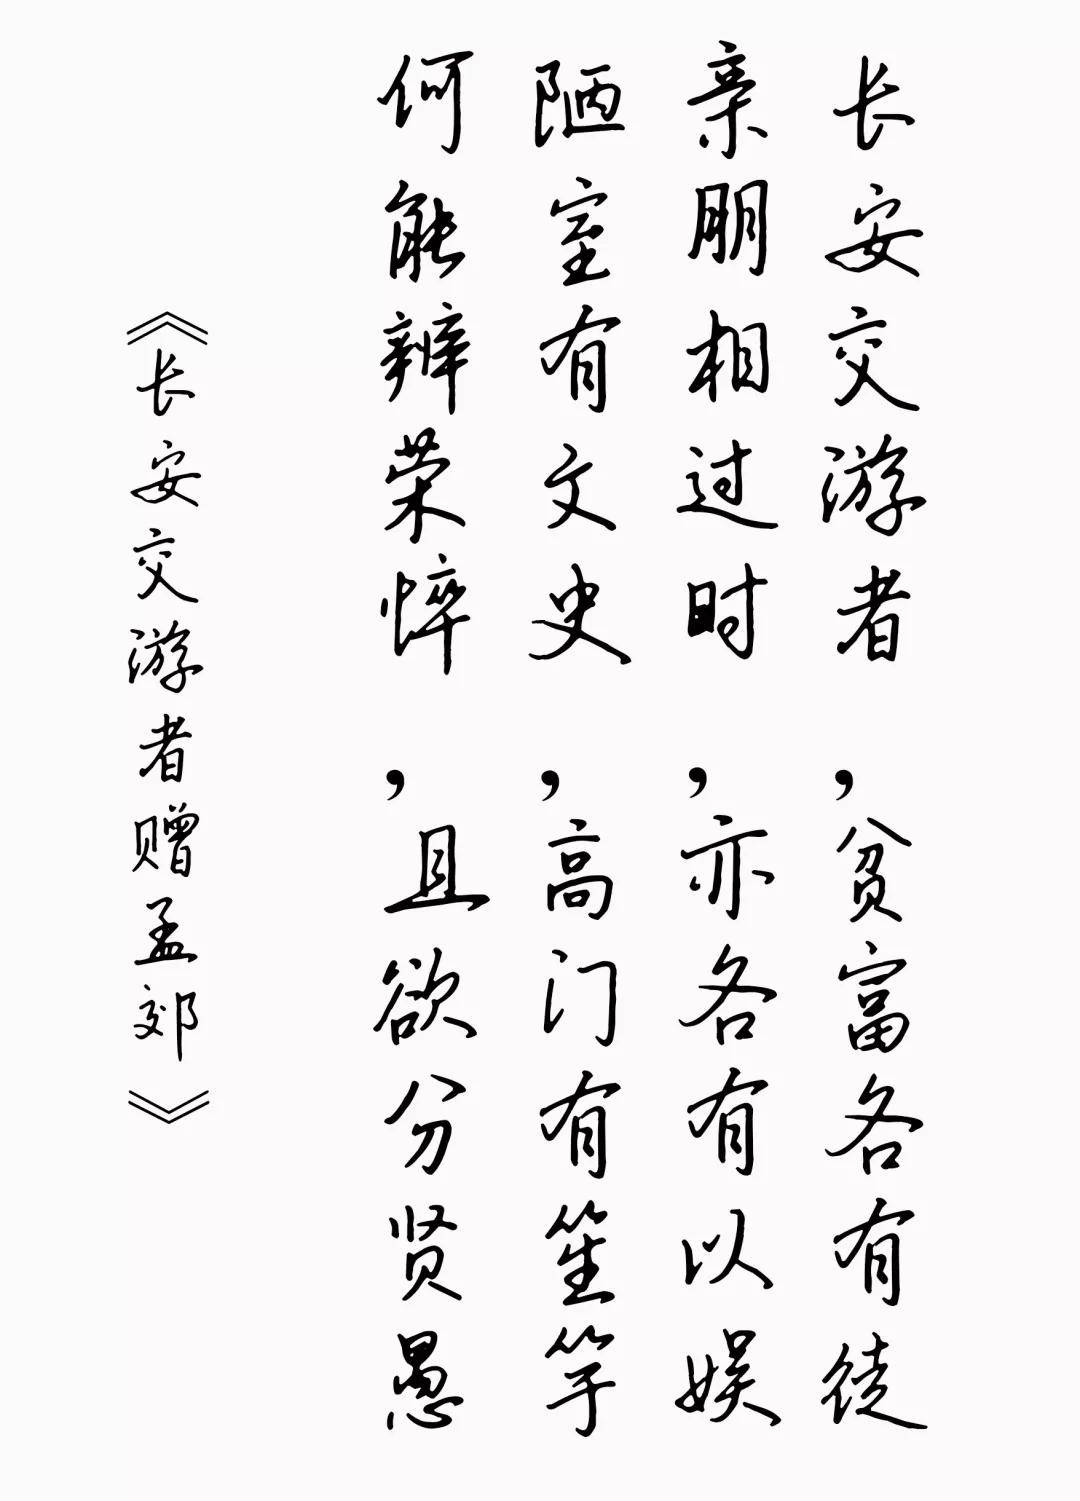 长安交游者，贫富各有徒
亲朋相过时，亦各有以娱
陋室有文史，高门有笙竽
何能辨荣悴，且欲分贤愚
《长安交游者赠孟郊》